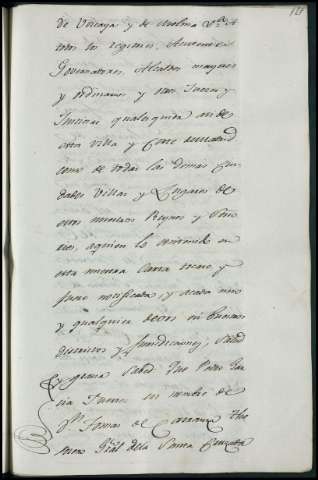 de Vizcaya y de Molina &c.ª A
todos los regidores, Asistentes
Governadores, Alcaldes mayores
y ordinarios y otros Jueces y
Justicias qualesquiera asi de
esta Villa y Corte
como de todas las demas Ciu
dades Villas y Lugares de
estos nuestros Reynos y Seño
rios, a quien lo contenido en
esta nuestra Carta toca y
fuere notificada, y a cada uno
y qualquiera de vos en vuestros
distritos y Jurisdicciones, Salud
y gracia Sabed Que Pedro Gar
cia Fuertes en nombre de
Dn Tomas de Carranza The
sorero Gral de la Santa Cruzada